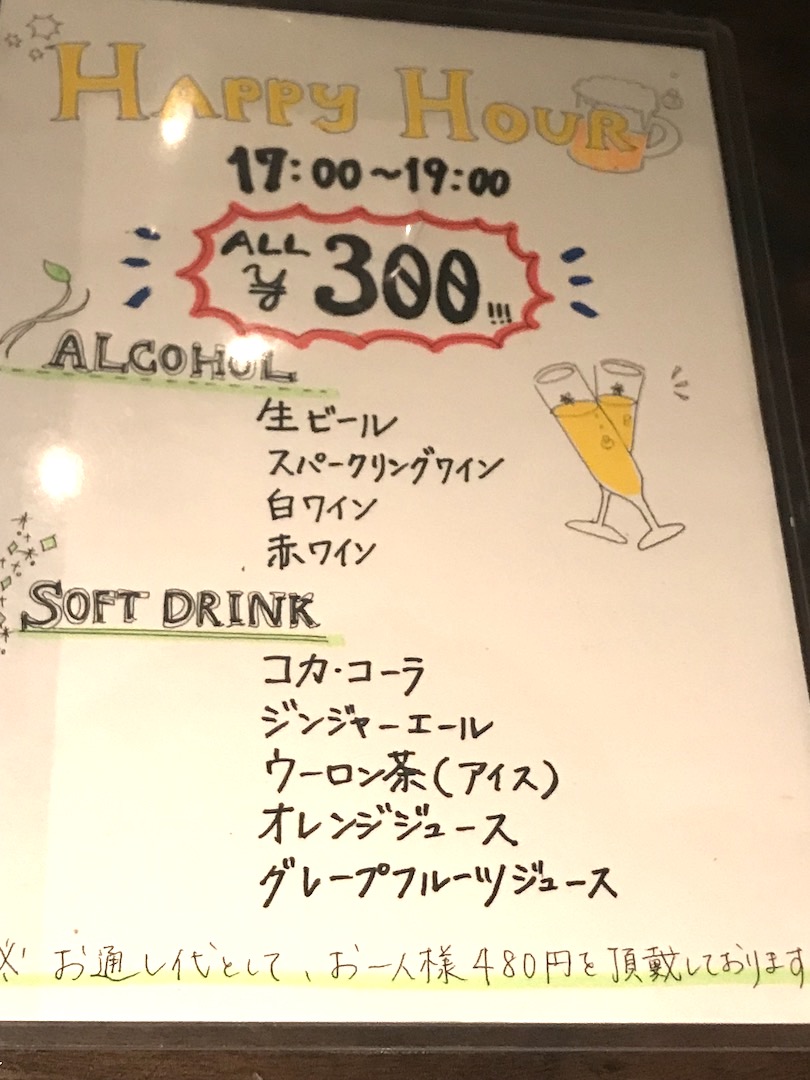 HAPPY HOUR
17:00～19:00
ALL
¥300!!!
ALCOHOL
生ビール
スパークリングワイン
白ワイン
赤ワイン
SOFT DRINK
コカ・コーラ
ジンジャーエール
ウーロン茶(アイス)
オレンジジュース
グレープフルーツジュース
※お通し代として、お一人様480円を頂戴しております